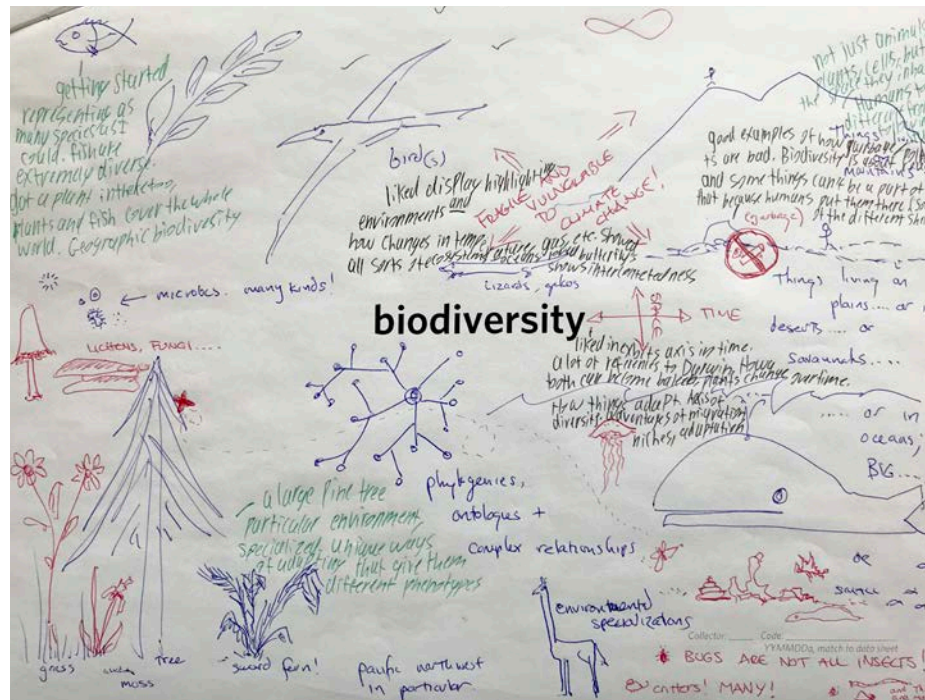 getting started
representing as
many species as I
could. fish are
extremely diverse.
got a plant in there too,
plants and fish cover the whole
world. Geographic biodiversity
bird(s)
liked display highlighting
environments and
how changes in temp
gas, etc. showed
all sorts of ecosystem
butterflys
shows interconnectedness
lizards, gekos
FRAGILE AND
VULNERABLE
TO
CLIMATE
CHANGE!
not just animals
plants, cells, but
the space they inha
Humans
good examples of how garbage
are bad. Biodiversity is
and some things can't be a part of
that because humans put them there
of the different
(garbage)
Things
mountains
Things living on
plains.... or
deserts.... or
savannahs....
..... or in
oceans;
BIG....
microbes. many kinds!
LICHENS, FUNGI....
biodiversity
SPACE
TIME
liked inexbits axis in time.
a lot of refrences to Darwin, how
tooth can become baleen, plants change overtime.
How things adapt
diversity, advantages of migration,
niches, adaptation
phylogenies,
ontologies +
complex relationships
a large pine tree
particular environment
specialized, unique ways
of adapting that give them
different phenotypes
grass
moss
tree
sword fern!
pacific northwest
in particular
environmental
specializations
or
Collector: Code:
YYMMDDa, match to data sheet
BUGS ARE NOT ALL INSECTS!
critters! MANY!